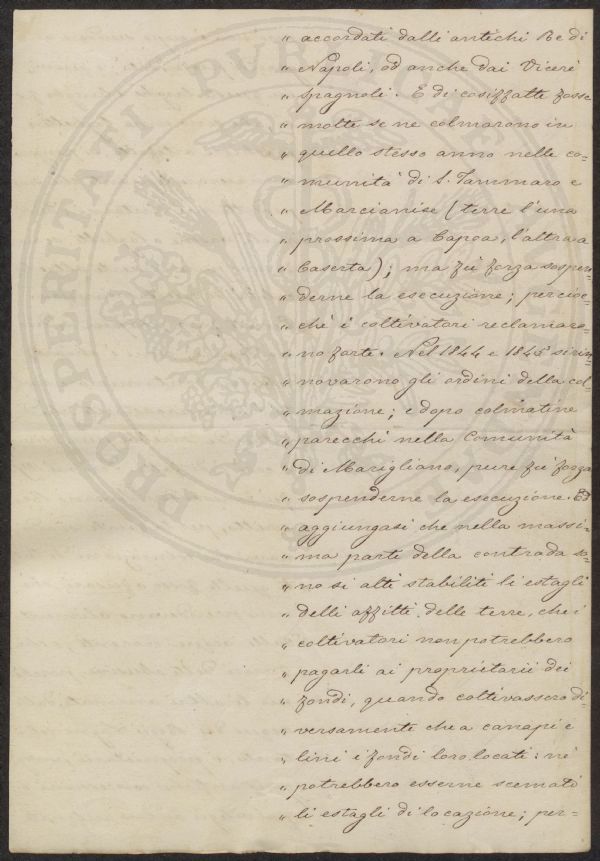 " accordati dalli antichi Re di
" Napoli, od anche dai Vicerè
" spagnoli. E di cosiffatte fosse
" molte se ne colmarono in
" quello stesso anno nelle co=
" munità di S. Tammaro e
" Marcianise (terre l'una
" prossima a Capoa, l'altra a
" Caserta); ma fu forza sospen=
" derne la esecuzione; percioc=
" chè i coltivatori reclamaro=
" no forte. Nel 1844 e 1845 si rin=
" novarono gli ordini della col=
" mazione; e dopo colmatine
" parecchi nella Comunità
" di Marigliano, pure fu forza
" sospenderne la esecuzione. Ed
" aggiungasi che nella massi=
" ma parte della contrada so=
" no sì alti stabiliti li estagli
" delli affitti delle terre, che i
" coltivatori non potrebbero
" pagarli ai proprietarii dei
" fondi, quando coltivassero di=
" versamente che a canapi e
" lini i fondi loro locati: nè
" potrebbero esserne scemati
" li estagli di locazione; per=
PROSPERITATI PVB